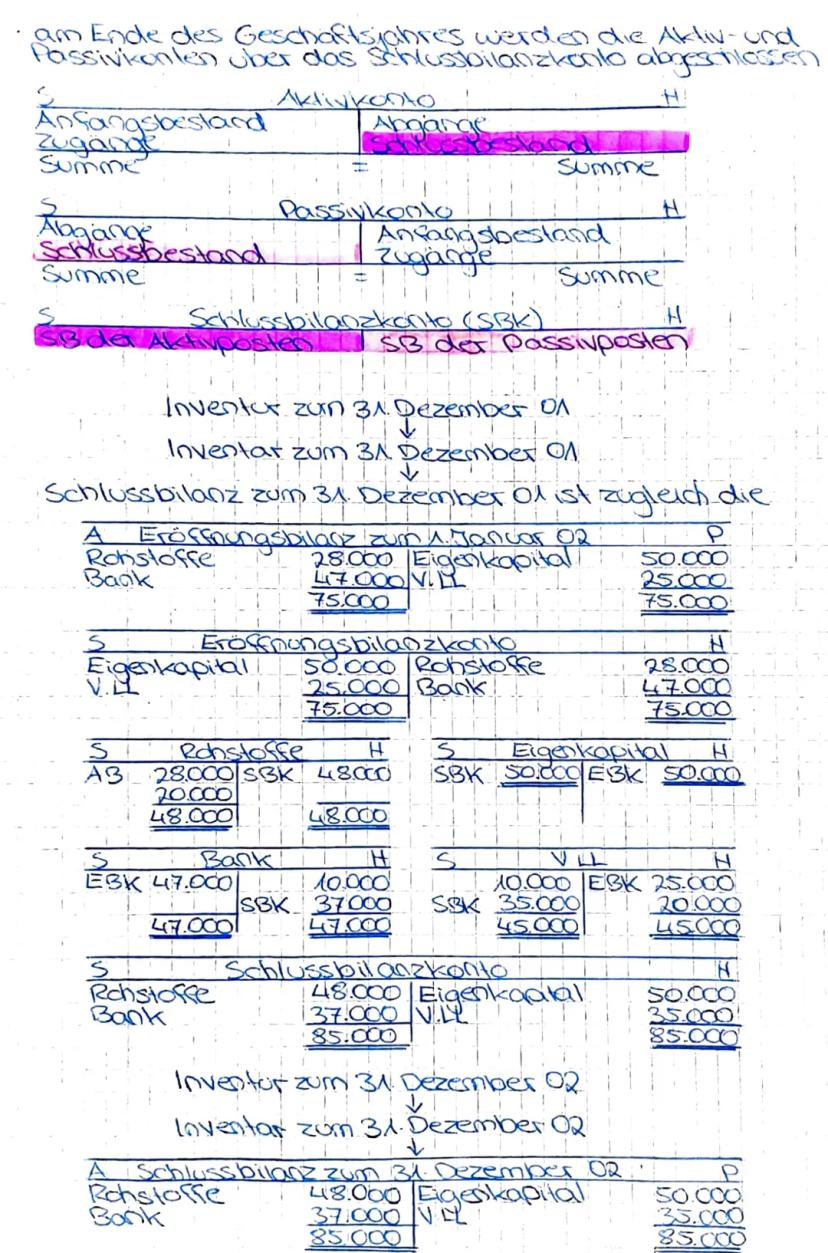 · am Ende des Geschäftsjahres werden die Aktiv- und
Passivkonten über das Schlussbilanzkonto abgeschlossen
S Aktivkonto H
Anfangsbestand Abgänge
Zugänge Schlussbestand
Summe = Summe
S Passivkonto H
Abgänge Anfangsbestand
Schlussbestand Zugänge
Summe = Summe
S Schlussbilanzkonto (SBK) H
SB der Aktivposten SB der Passivposten
Inventur zum 31. Dezember 01
↓
Inventar zum 31. Dezember 01
↓
Schlussbilanz zum 31. Dezember 01 ist zugleich die
A Eröffnungsbilanz zum 1. Januar 02 P
Rohstoffe 28.000 Eigenkapital 50.000
Bank 47.000 V.LL 25.000
75.000 75.000
S Eröffnungsbilanzkonto H
Eigenkapital 50.000 Rohstoffe 28.000
V.LL 25.000 Bank 47.000
75.000 75.000
S Rohstoffe H S Eigenkapital H
AB 28.000 SBK 48000 SBK 50.000 EBK 50.000
20.000
48.000 48.000
S Bank H S VLL H
EBK 47.000 10.000 10.000 EBK 25.000
SBK 37000 SBK 35.000 20.000
47.000 47.000 45.000 45.000
S Schlussbilanzkonto H
Rohstoffe 48.000 Eigenkapital 50.000
Bank 37.000 V.LL 35.000
85.000 85.000
Inventur zum 31. Dezember 02
↓
Inventar zum 31. Dezember 02
↓
A Schlussbilanz zum 31. Dezember 02 P
Rohstoffe 48.000 Eigenkapital 50.000
Bank 37.000 V.LL 35.000
85.000 85.000